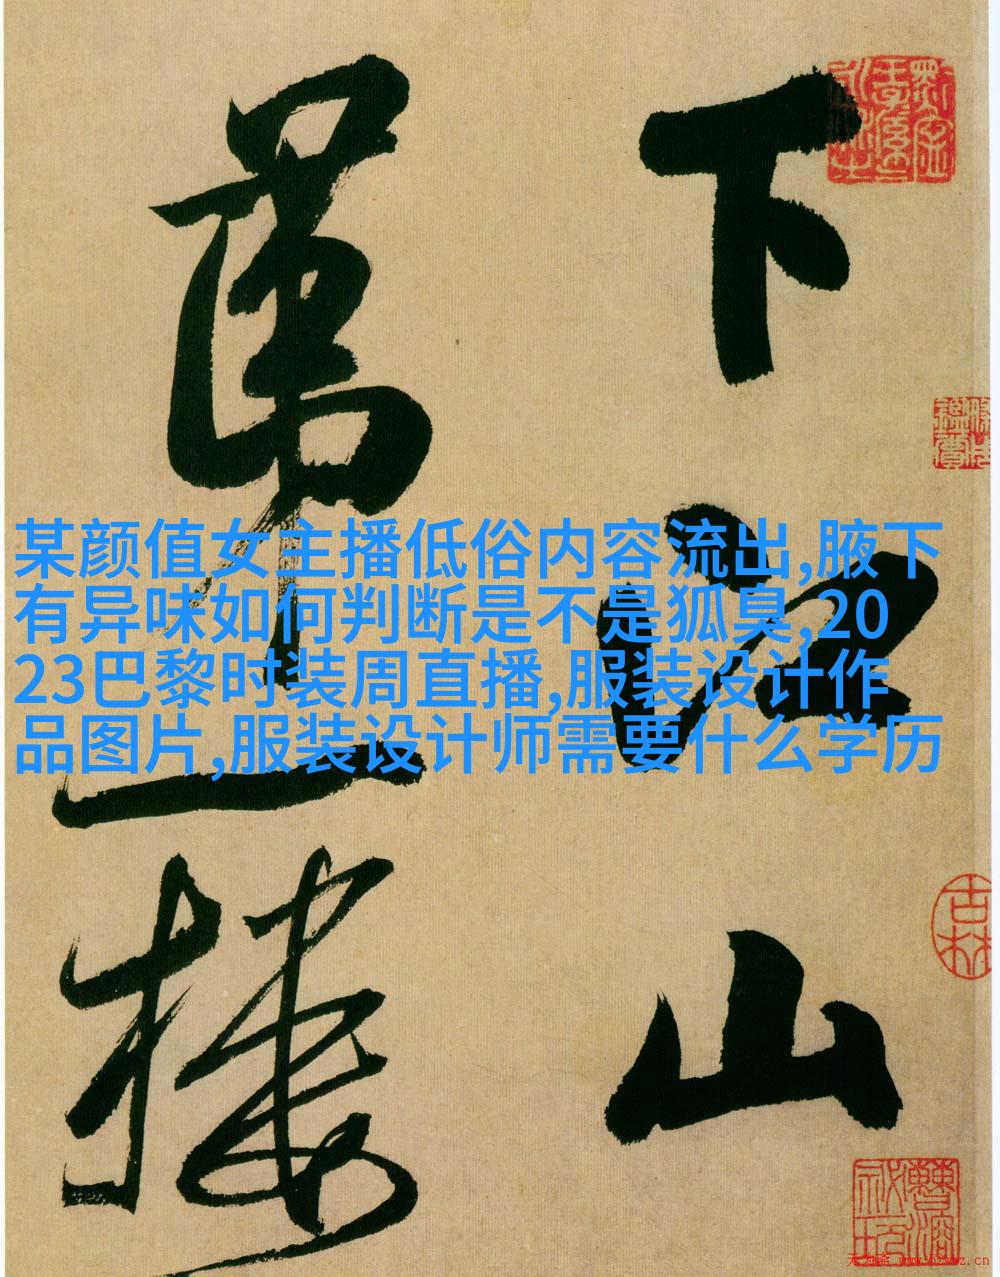 下江山
第一樓
某颜值女主播低俗内容流出,腋下
有异味如何判断是不是狐臭,20
23巴黎时装周直播,服装设计作
品图片,服装设计师需要什么学历